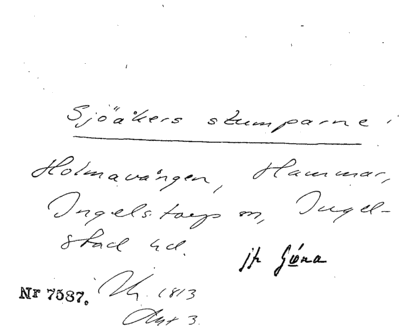 Sjöåkers stumparne i
Holmavången, Hammar,
Ingelstorps sn, Ingel-
stad hd.
jfr Göna
Nr 7587.
1813
Akt 3.